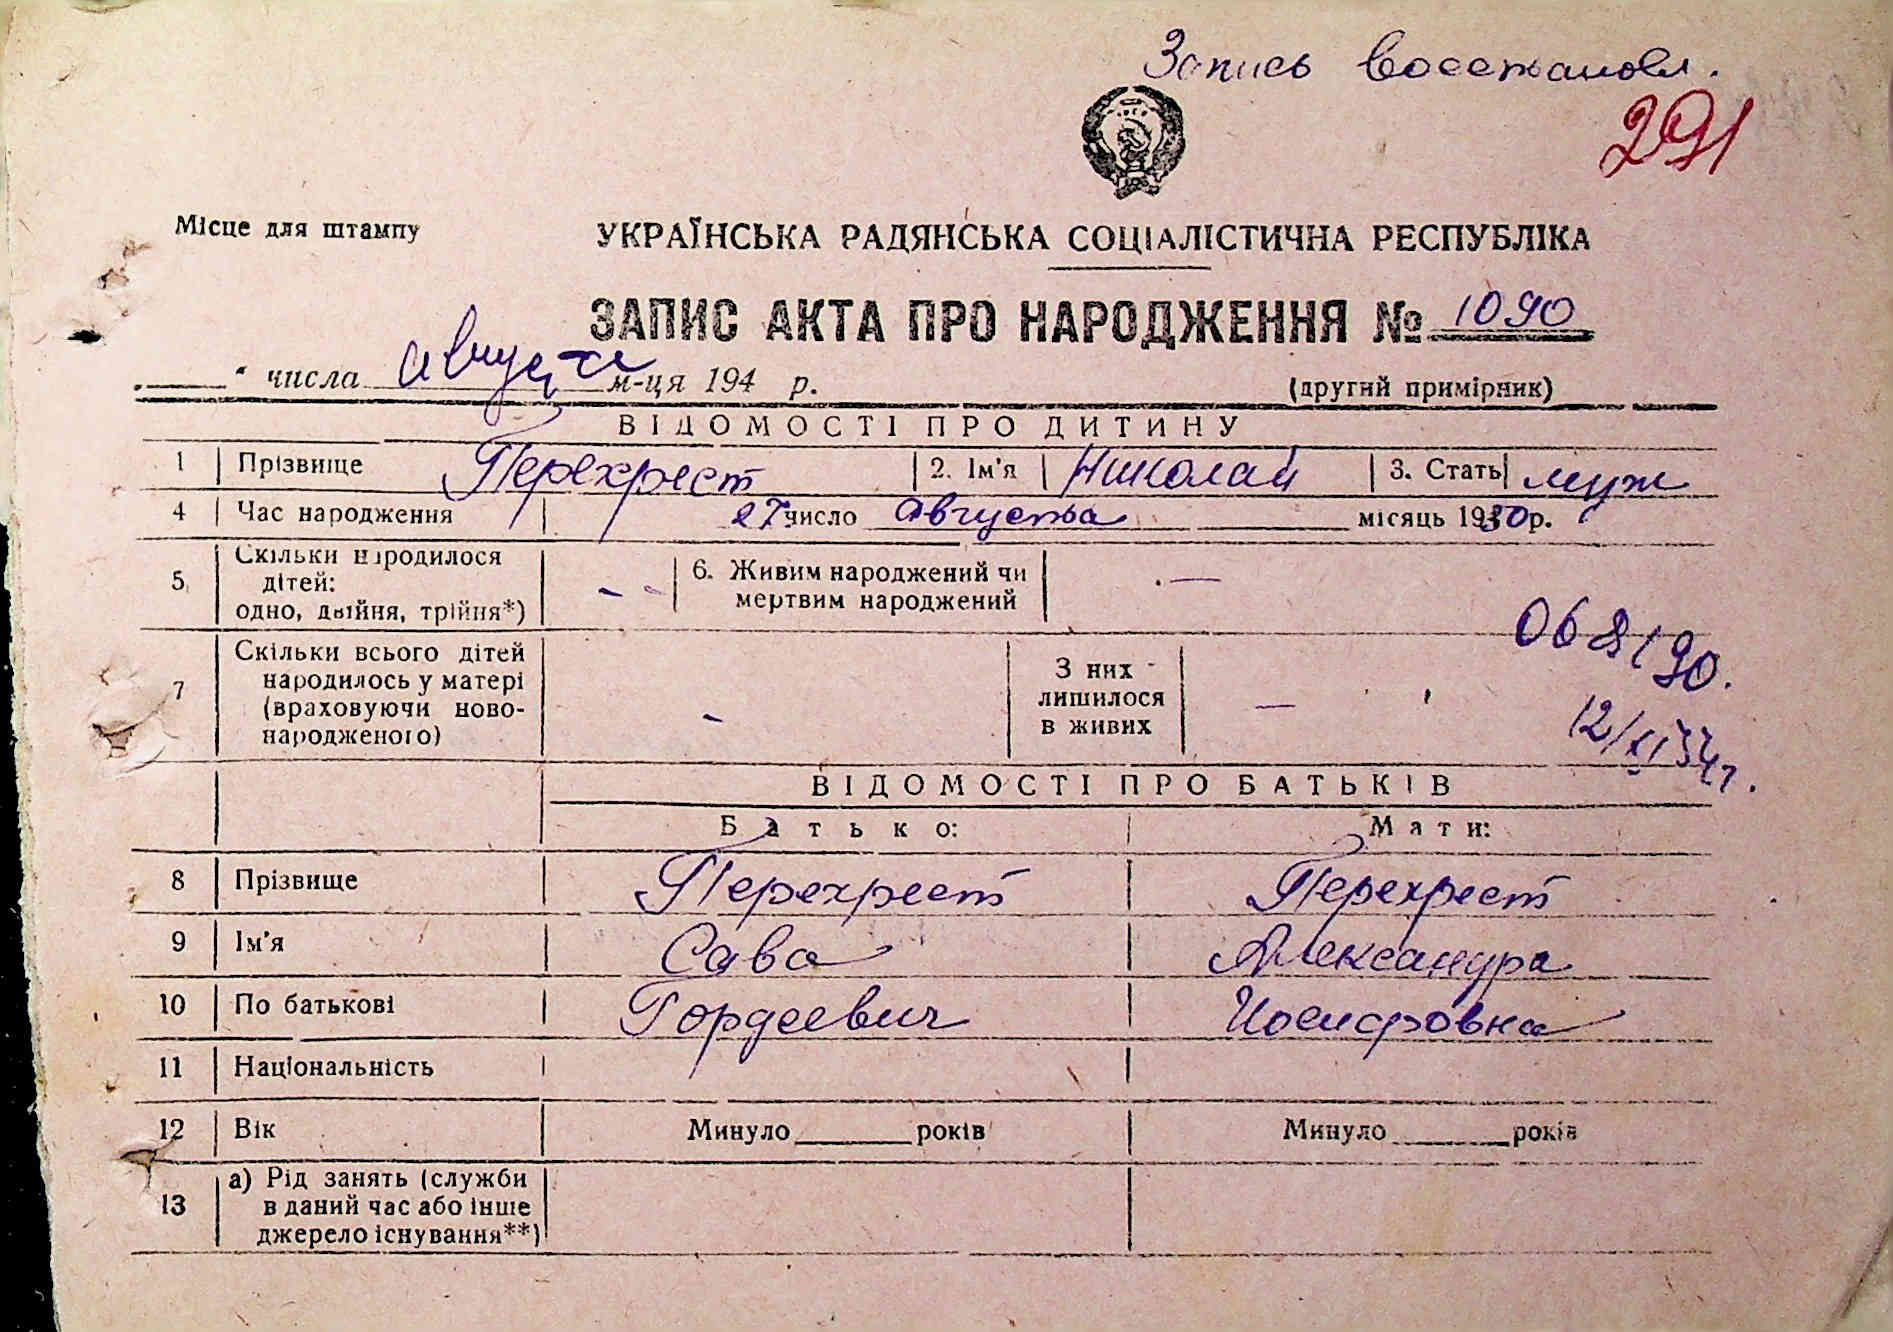 Запись восстановл.
291
Місце для штампу
УКРАЇНСЬКА РАДЯНСЬКА СОЦІАЛІСТИЧНА РЕСПУБЛІКА
ЗАПИС АКТА ПРО НАРОДЖЕННЯ № 1090
" числа августа м-ця 194 р.
(другий примірник)
ВІДОМОСТІ ПРО ДИТИНУ
1 Прізвище Перехрест 2. Ім'я Николай 3. Стать муж
4 Час народження 27 число Августа місяць 1930 р.
5 Скільки народилося дітей: одно, двійня, трійня*) - - 6. Живим народжений чи мертвим народжений —
7 Скільки всього дітей народилось у матері (враховуючи новонародженого) - З них лишилося в живих —
12/XI
ВІДОМОСТІ ПРО БАТЬКІВ
Батько: Мати:
8 Прізвище Перехрест Перехрест
9 Ім'я Сава Александра
10 По батькові Гордеевич Иосифовна
11 Національність
12 Вік Минуло років Минуло років
13 а) Рід занять (служби в даний час або інше джерело існування**)